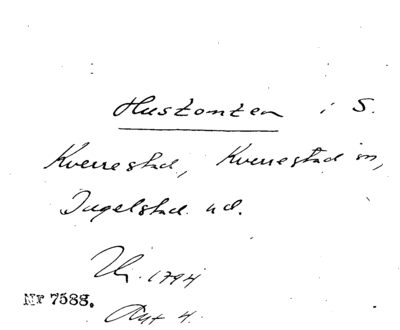 Hustomten i S.
Kverrestad, Kverrestad sn,
Ingelstad hd.
Th. 1794
Nr 7588.
Art 4.